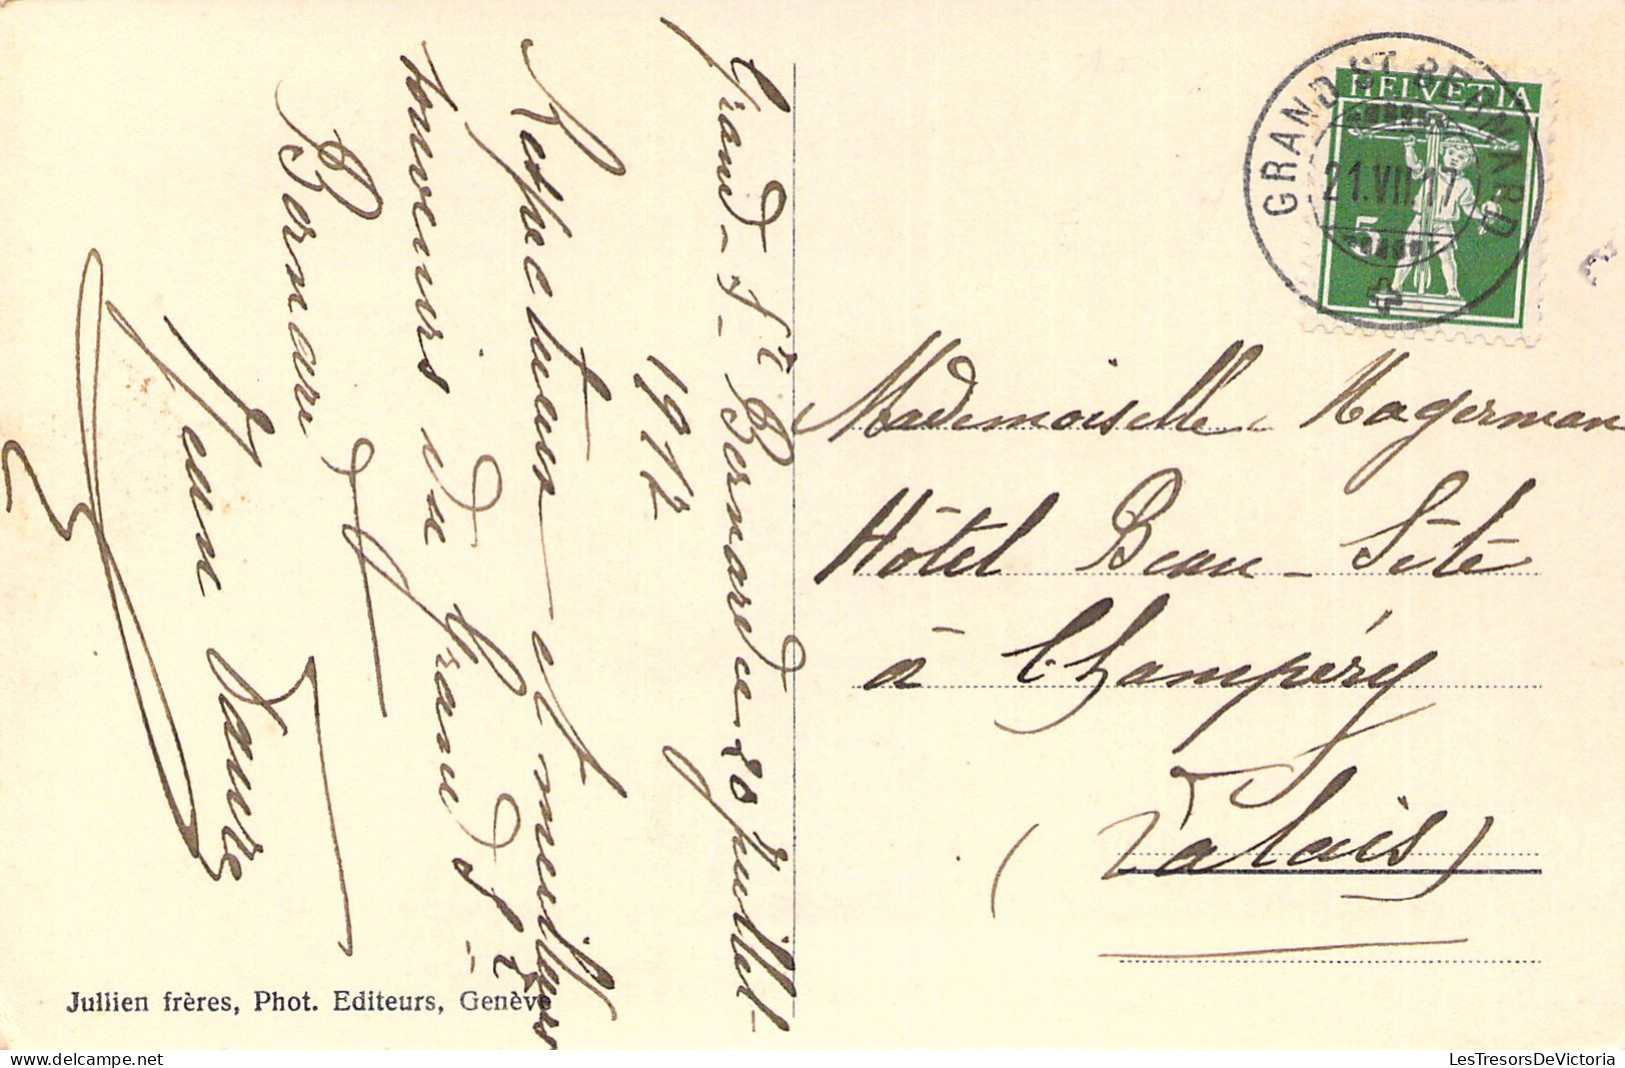 Grand-St-Bernard ce 20 Juillet-
1912
Respectueux et meilleurs
souvenirs du Grand St-
Bernard
Jean
Jullien frères, Phot. Editeurs, Genève
HELVETIA
5
GRAND ST BERNARD
21.VII.
Mademoiselle Hagerman
Hôtel Beau-Site
à Champéry
(Valais)
LesTresorsDeVictoria